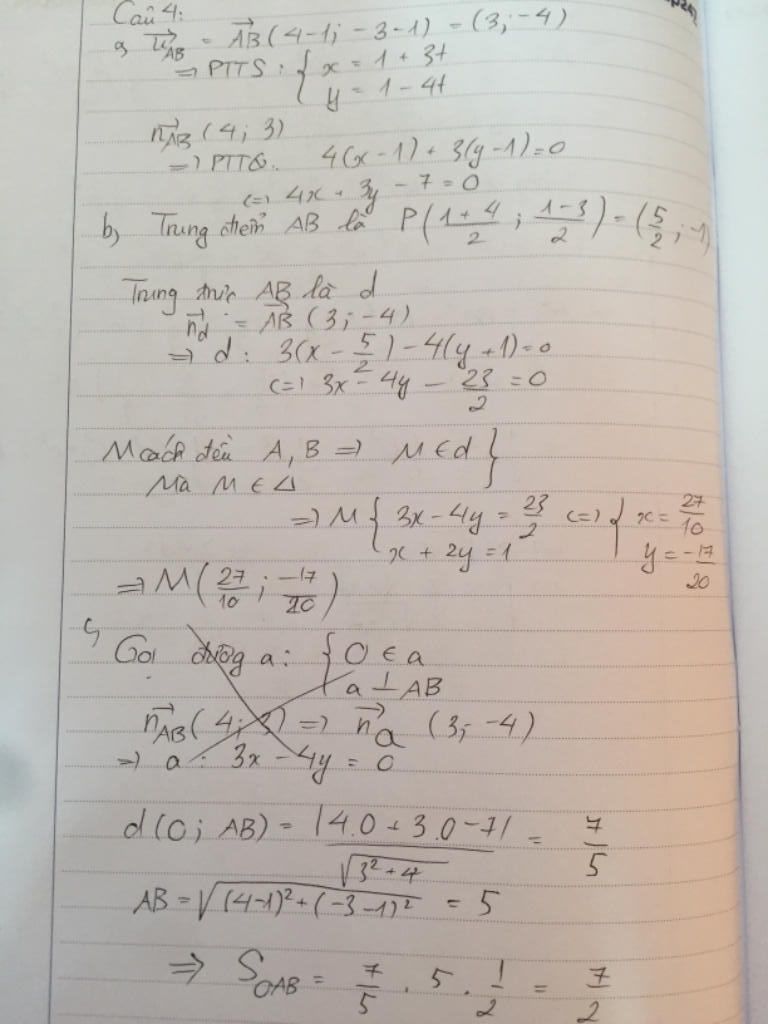 Câu 4:
a, $\vec{u}_{AB} = \overrightarrow{AB}(4-1; -3-1) = (3; -4)$
=> PTTS: $\begin{cases} x = 1 + 3t \\ y = 1 - 4t \end{cases}$
$\vec{n}_{AB}(4; 3)$
=> PTTQ: $4(x-1) + 3(y-1) = 0$
<=> $4x + 3y - 7 = 0$
b, Trung điểm AB là $P\left(\frac{1+4}{2}; \frac{1-3}{2}\right) = \left(\frac{5}{2}; -1\right)$
Trung trực AB là d
$\vec{n}_d = \overrightarrow{AB}(3; -4)$
=> d: $3(x - \frac{5}{2}) - 4(y+1) = 0$
<=> $3x - 4y - \frac{23}{2} = 0$
M cách đều A, B => M ∈ d }
Mà M ∈ Δ
=> M $\begin{cases} 3x - 4y = \frac{23}{2} \\ x + 2y = 1 \end{cases}$ <=> $\begin{cases} x = \frac{27}{10} \\ y = \frac{-17}{20} \end{cases}$
=> $M\left(\frac{27}{10}; \frac{-17}{20}\right)$
c, Gọi đường a: $\begin{cases} O ∈ a \\ a ⊥ AB \end{cases}$
$\vec{n}_{AB}(4; 3)$ => $\vec{n}_a(3; -4)$
=> a: $3x - 4y = 0$
$d(O; AB) = \frac{|4.0 + 3.0 - 7|}{\sqrt{3^2 + 4}} = \frac{7}{5}$
$AB = \sqrt{(4-1)^2 + (-3-1)^2} = 5$
=> $S_{OAB} = \frac{7}{5} . 5 . \frac{1}{2} = \frac{7}{2}$